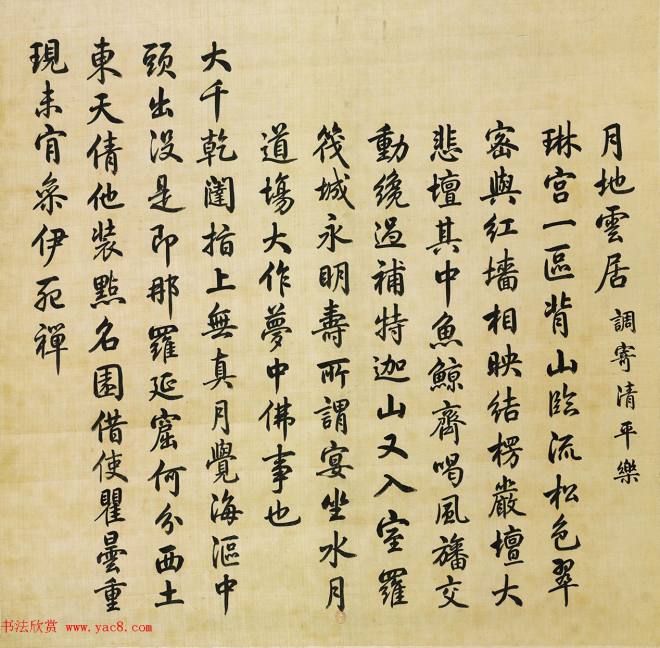 月地雲居 調寄清平樂
琳宫一區背山臨流松色翠
密與紅墻相映結楞嚴壇大
悲壇其中魚鯨齊喝風旛交
動纔過補特迦山又入室羅
筏城永明壽所謂宴坐水月
道場大作夢中佛事也
大千乾闥指上無真月覺海漚中
頭出没是即那羅延窟何分西土
東天倩他裝點名園借使瞿曇重
現未肯參伊死禪
书法欣赏 www.yac8.com